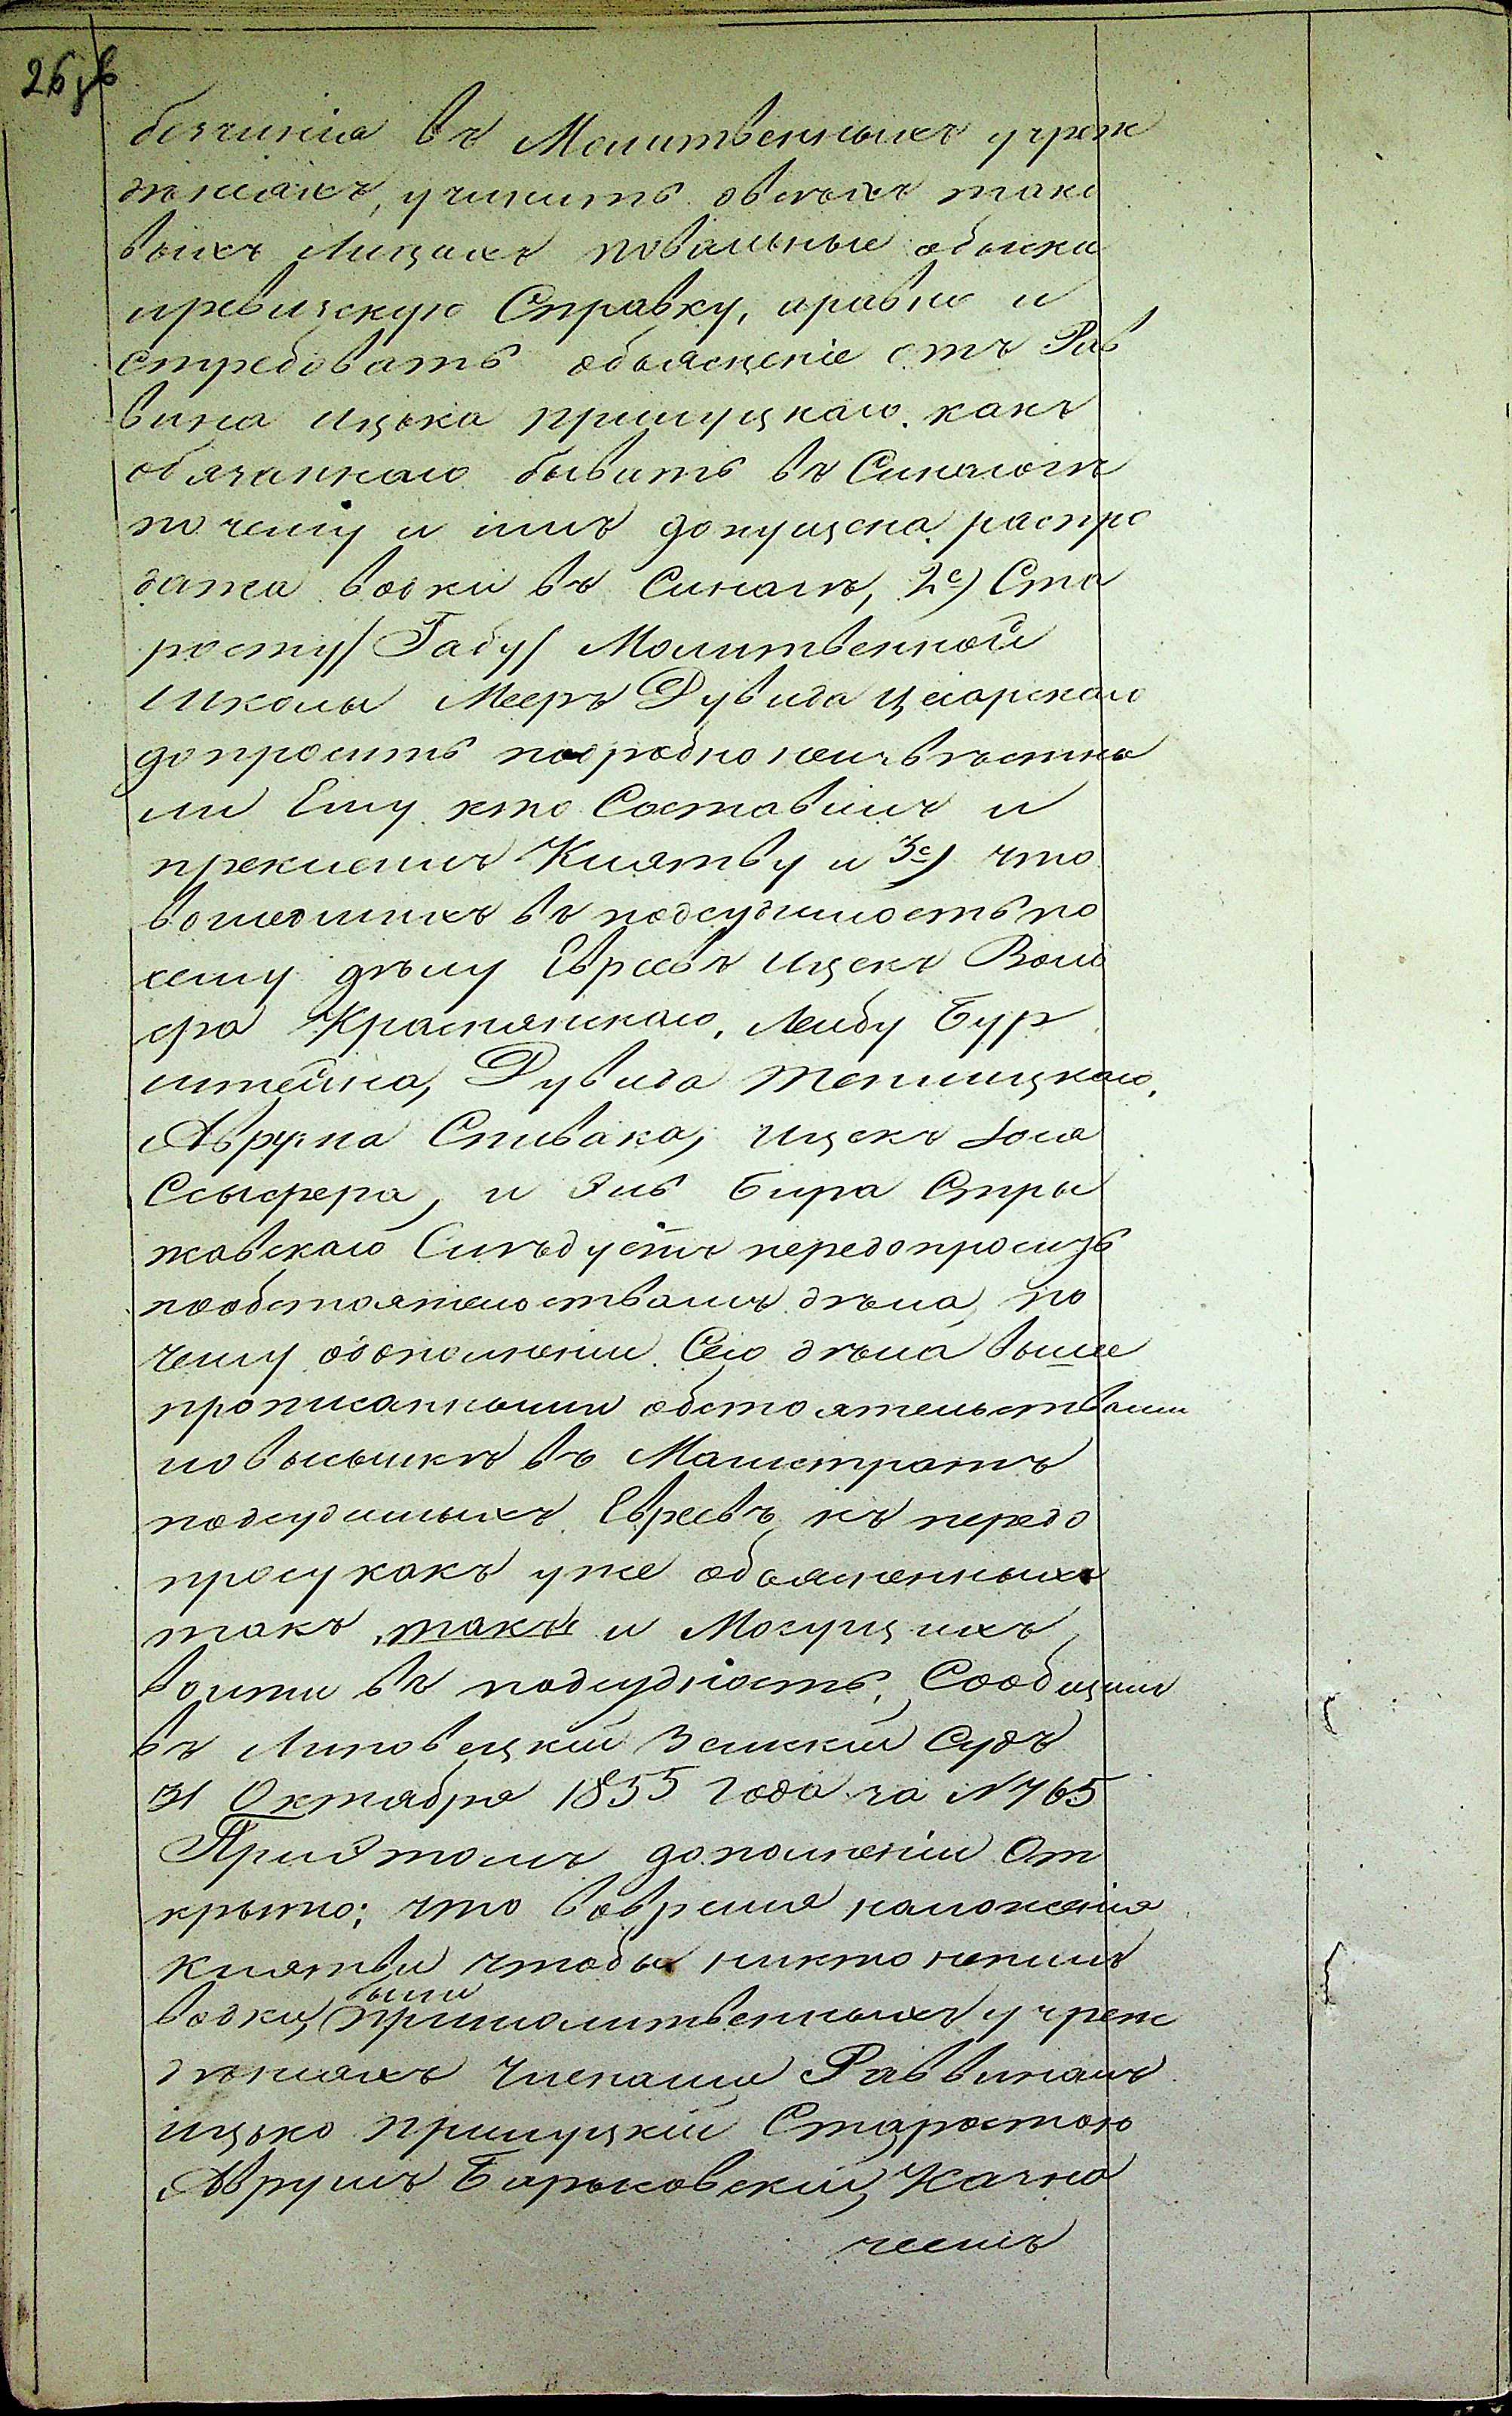 безчинія въ Молитвенныхъ учреж
дѣніяхъ, учинить овсѣхъ тако
выхъ Лицахъ повальные обыски
иревизскую Справку, иравно и
стребовать объясненіе отъ Рав
вина Ицька Прилуцкаго, какъ
обязаннаго бывать въ Синагогѣ
почему и имъ допущена распро
дажа водки въ Синагогѣ, 2е) Ста
росту /Габу/ Молитвенной
Школы Меера Дувида Цегарскаго
допросить подробно неизвѣстно
ли Ему кто Составилъ и
прекленилъ Клятву и 3е) что
вошедшихъ въ подсудимость по
сему дѣлу Евреевъ Ицекъ Воль
фа Краснянскаго, Лейбу Бур
штейна, Дувида Теплицкаго,
Аврума Спивака, Ицекъ Іося
Ссысфера, и Зив Бира Стры
жавскаго Слѣдуетъ передопросить
пообстоятельствамъ дѣла, по
чему одополненіи Сего дѣла выше
прописанными обстоятельствами
иовысылкѣ въ Магистратъ
подсудимыхъ Евреевъ къ передо
просу какъ уже объясненныхъ
такъ такъ и Могущихъ
войти въ подсудность, Сообщилъ
въ Липовецкій Земскій Судъ
31 Октября 1855 года за № 765
Приэтомъ дополненіи От
крыто; что вовремя наложенія
клятвы чтобы никто непилъ
водки, были примолитвенныхъ учреж
дѣніяхъ Членами Раввиномъ
Ицько Прилуцкій Старостою
Аврумъ Барьковскій, Казна
чеемъ
26 зв